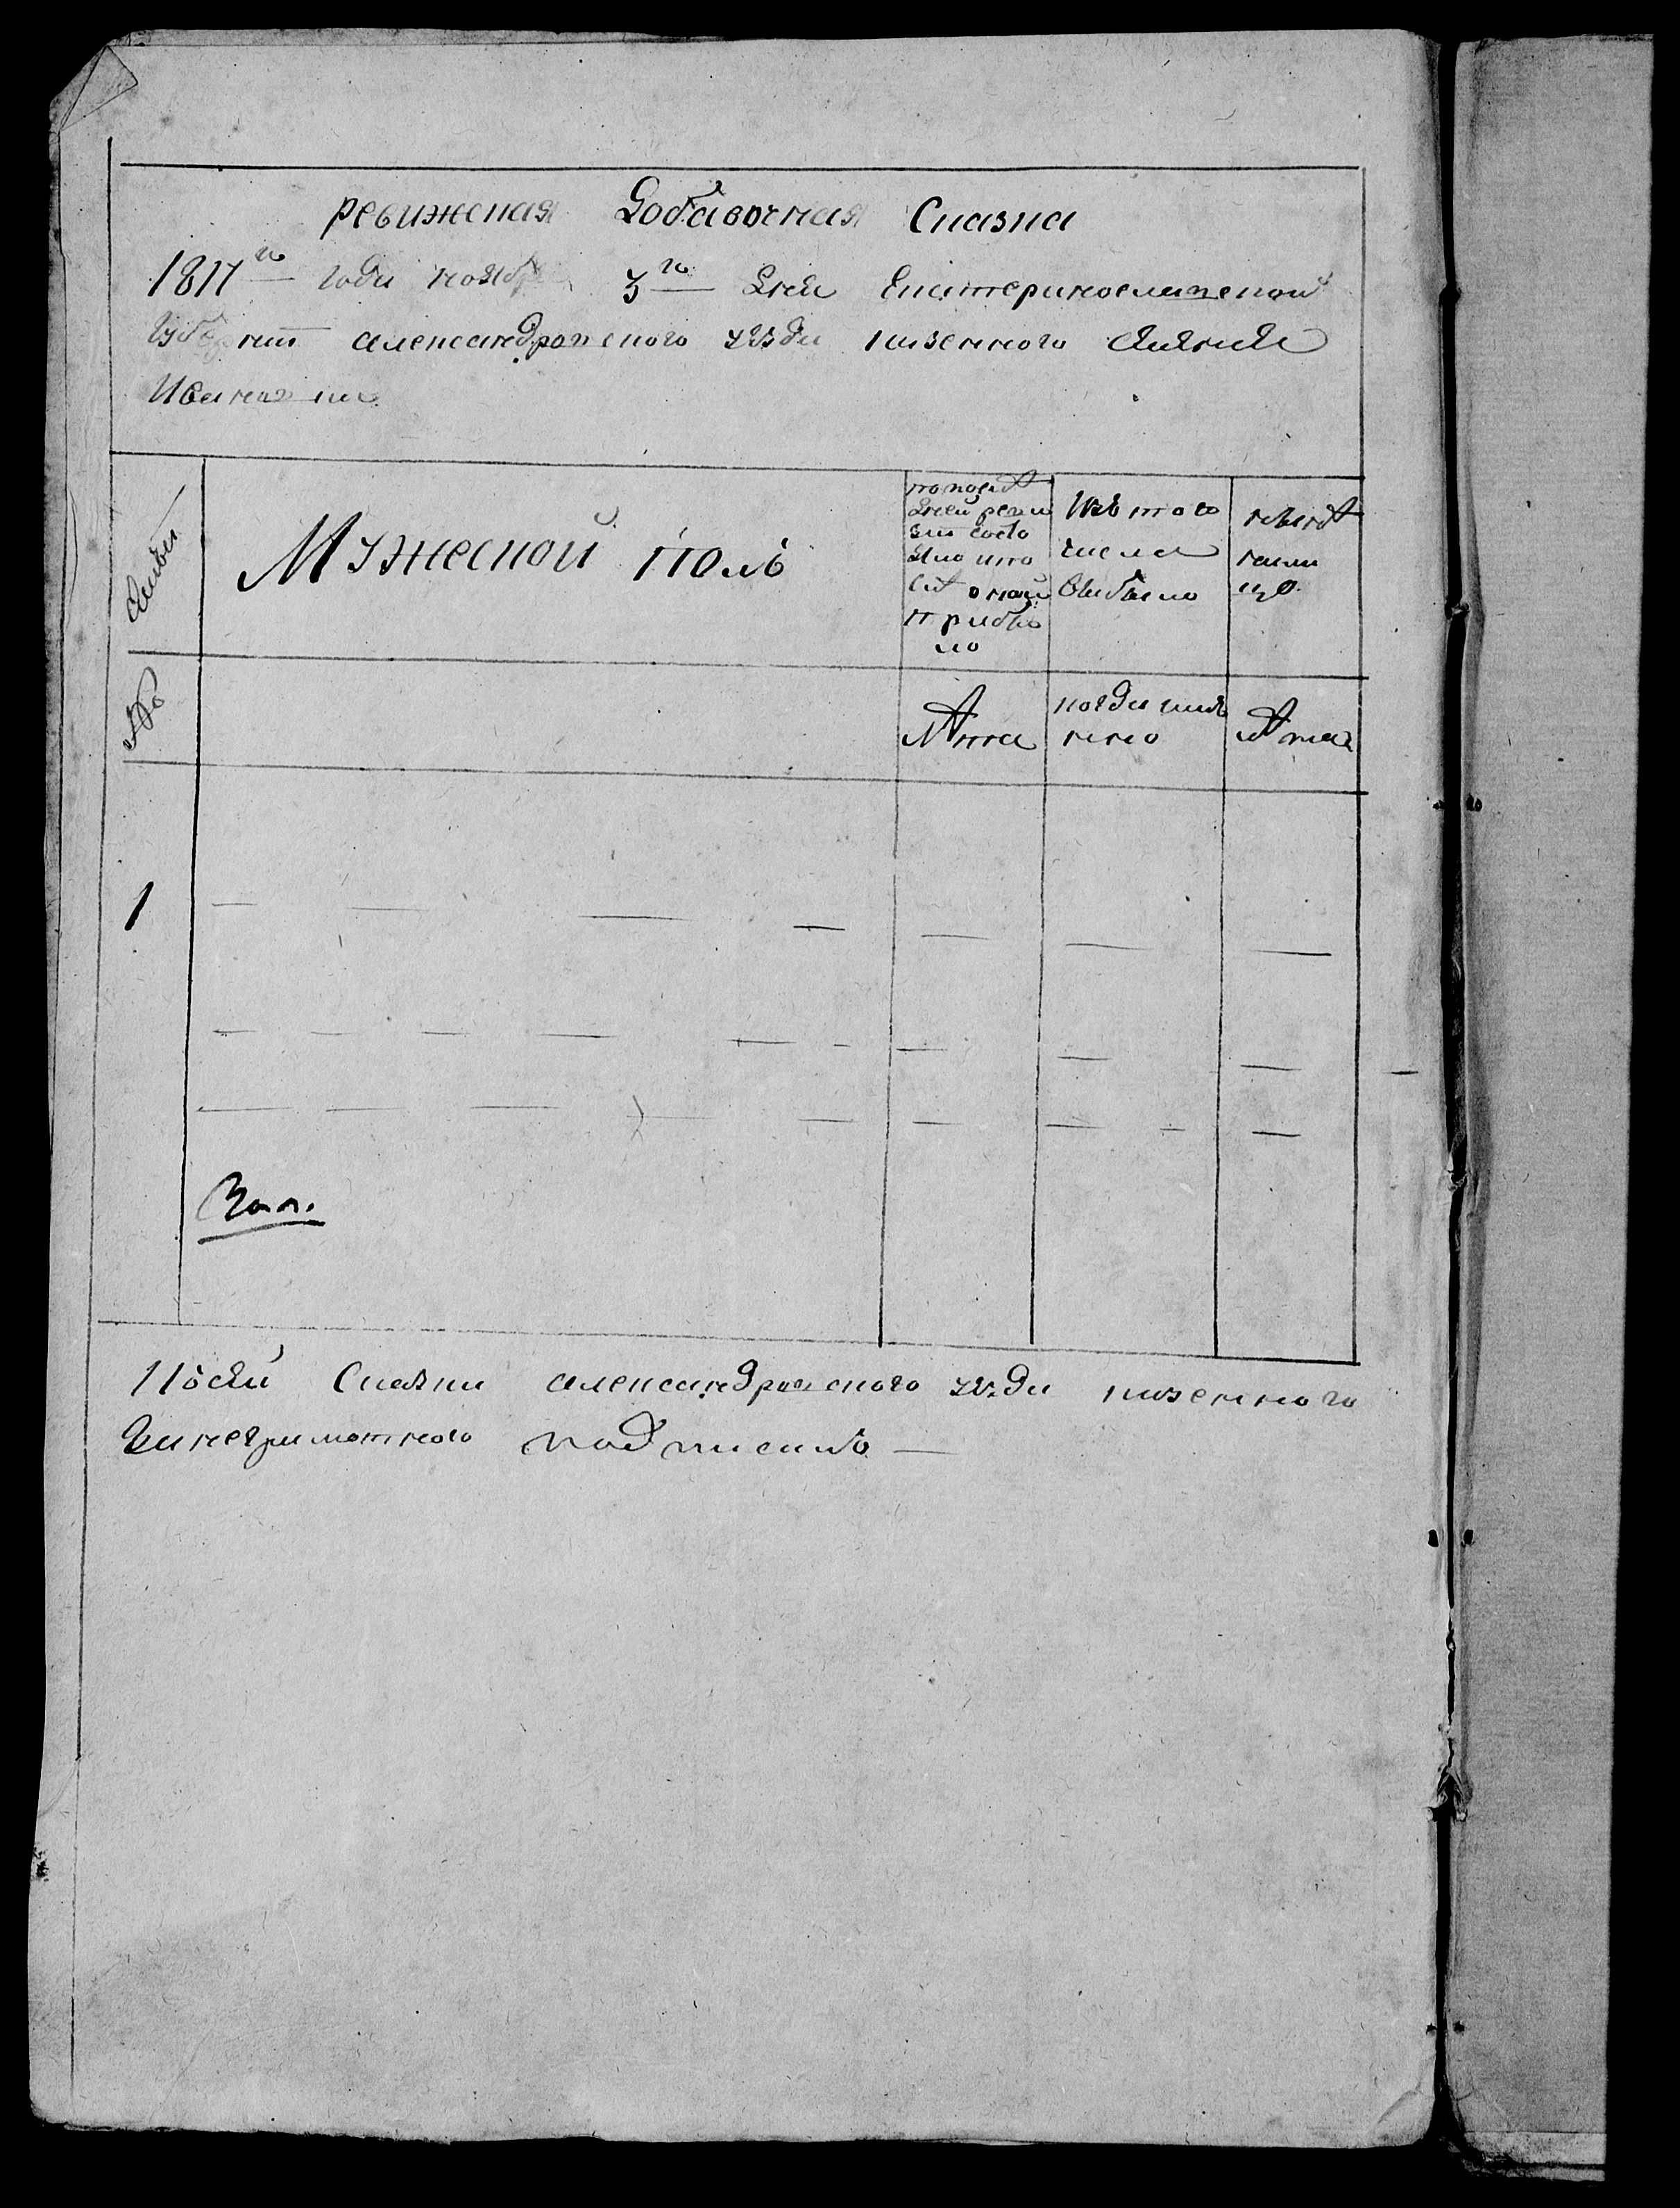 ревижская Добавочная Сказка
1811го года ноября 3го дня Екатеринославской
Губернии александровского уезда казенного селения
Ивановки
Семьи
Мужеской полъ
По последней ревизии состояло и после оной прибыло
Изъ того числа выбыло
ныне налицо
№
Лѣта
когда имянно
Лѣта
1
Къ сей Сказки александровского уезда казенного
за неграмотного подписалъ